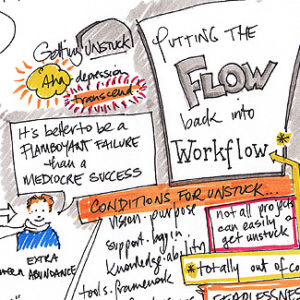 Getting UNSTUCK!
Aha
depression
transcend
PUTTING THE
FLOW
back into
Workflow
It's better to be a
FLAMBOYANT FAILURE
than a
MEDIOCRE SUCCESS
CONDITIONS FOR UNSTUCK...
vision · purpose
support · buy in
knowledge · ability
tools · framework
not all projects
can easily
get unstuck
*totally out of co
EXTRA
ABUNDANCE